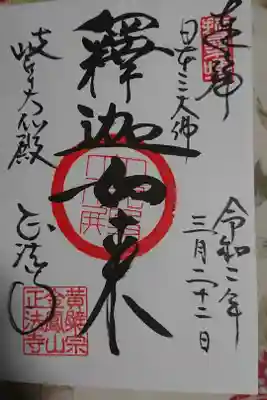 奉拝
日本三大佛
令和二年
三月二十二日
釋迦如来
岐阜大仏殿
正法寺
黄檗宗
金鳳山
正法寺